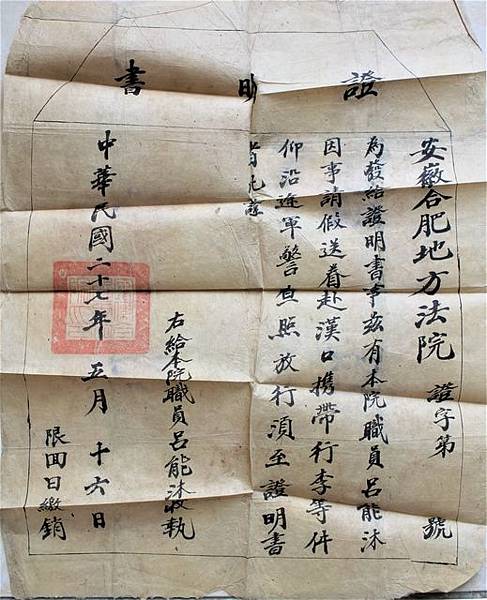 證明書
安徽合肥地方法院 證字第 號
為發給證明書事茲有本院職員呂能沐
因事請假送眷赴漢口携帶行李等件
仰沿途軍警查照放行須至證明書
者
右給本院職員呂能沐收執
中華民國二十七年五月十六日
限回日繳銷